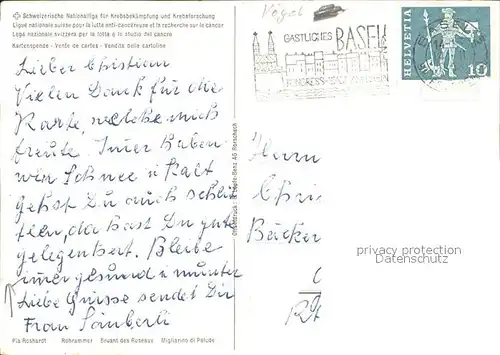 Schweizerische Nationalliga für Krebsbekämpfung und Krebsforschung
Ligue nationale suisse pour la lutte anti-cancéreuse et la recherche sur le cancer
Lega nazionale svizzera per la lotta e lo studio del cancro
Kartenspende - Vente de cartes - Vendita delle cartoline
Vögel
GASTLICHES BASEL
HELVETIA
10
Lieber Christian
Vielen Dank für die
Karte, welche mich
freute. Imer haben
wir Schnee u kalt
gehst Du auch schlit
teln, da hast Du gute
gelegenheit. Bleibe
imer gesund u munter
Liebe Grüsse sendet Dir
Frau
Herrn
Chri
Bäcker
privacy protection
Datenschutz
Pia Roshardt Rohrammer Bruant des Roseaux Migliarino di Palude